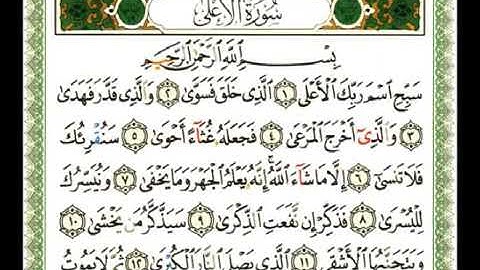 سُورَةُ الأَعْلَى
بِسْمِ اللَّهِ الرَّحْمَٰنِ الرَّحِيمِ
سَبِّحِ اسْمَ رَبِّكَ الْأَعْلَى ١ الَّذِي خَلَقَ فَسَوَّىٰ ٢ وَالَّذِي قَدَّرَ فَهَدَىٰ
٣ وَالَّذِي أَخْرَجَ الْمَرْعَىٰ ٤ فَجَعَلَهُ غُثَاءً أَحْوَىٰ ٥ سَنُقْرِئُكَ
فَلَا تَنسَىٰ ٦ إِلَّا مَا شَاءَ اللَّهُ إِنَّهُ يَعْلَمُ الْجَهْرَ وَمَا يَخْفَىٰ ٧ وَنُيَسِّرُكَ
لِلْيُسْرَىٰ ٨ فَذَكِّرْ إِن نَّفَعَتِ الذِّكْرَىٰ ٩ سَيَذَّكَّرُ مَن يَخْشَىٰ ١٠
وَيَتَجَنَّبُهَا الْأَشْقَى ١١ الَّذِي يَصْلَى النَّارَ الْكُبْرَىٰ ١٢ ثُمَّ لَا يَمُوتُ